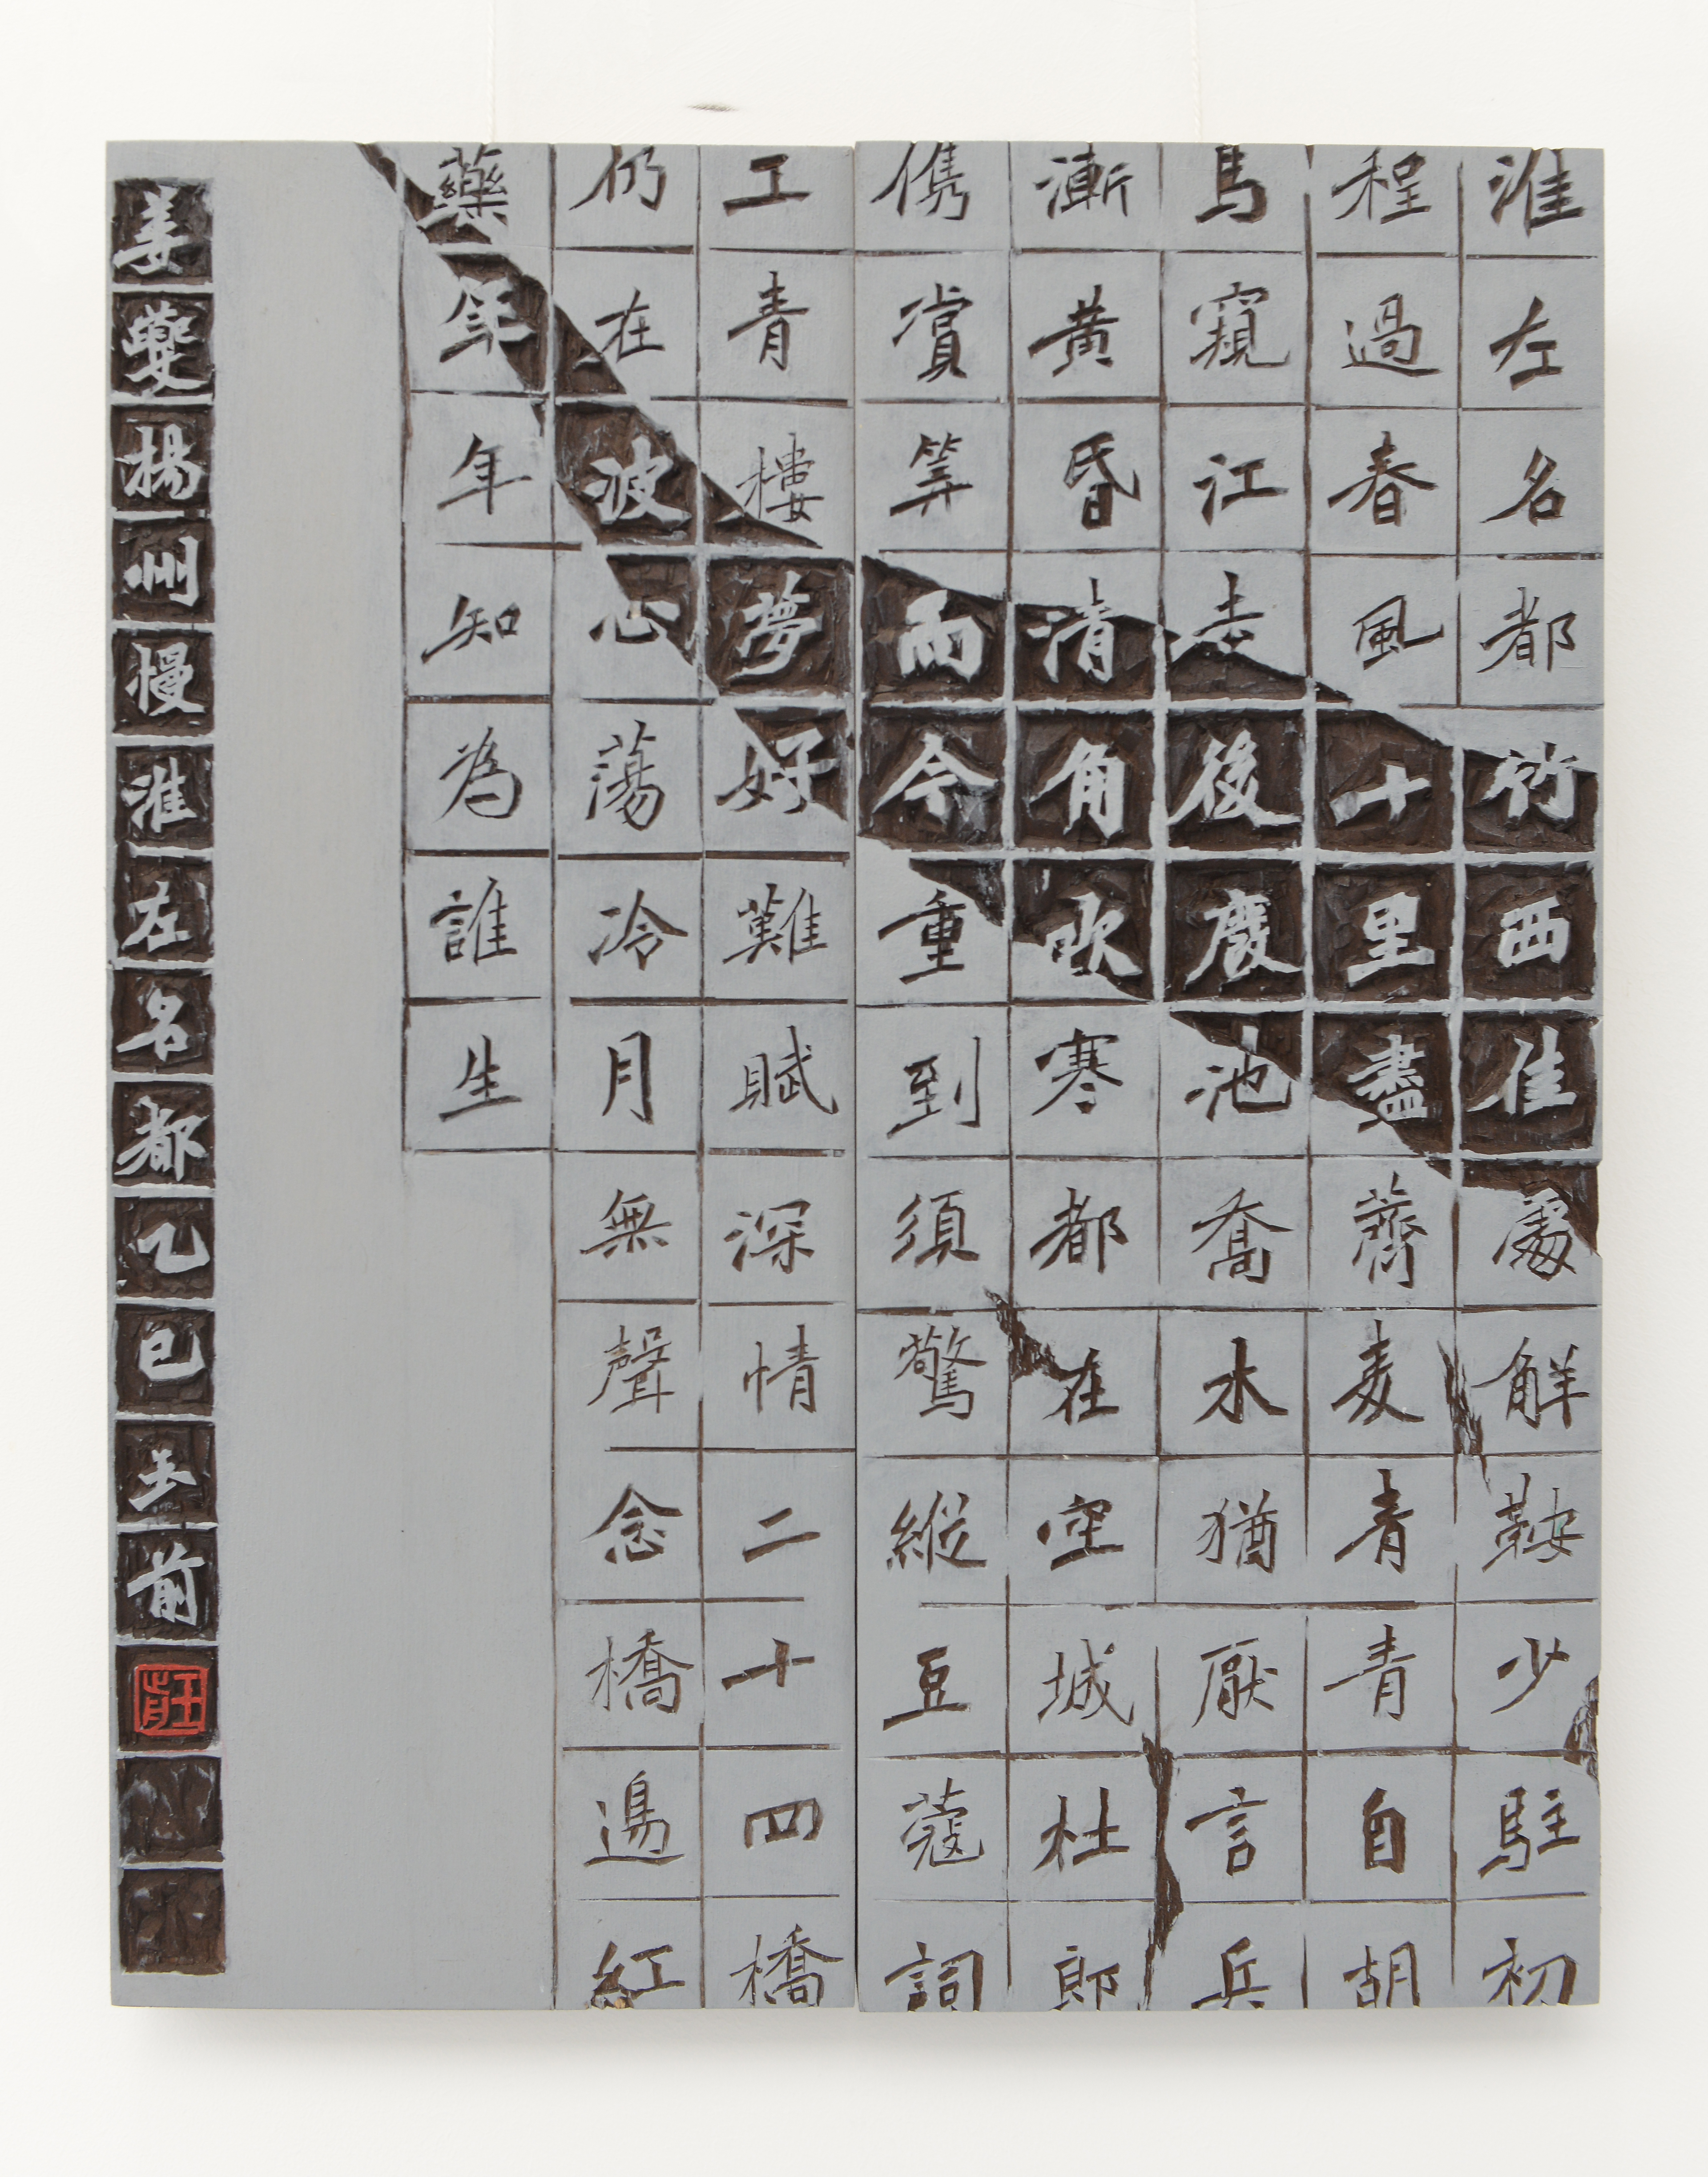 淮左名都竹西佳處解鞍少駐初
程過春風十里盡薺麦青青自胡
馬窺江去後廢池喬木猶厭言兵
漸黃昏清角吹寒都在空城杜郎
儁賞筭而今重到須驚縱豆蔻詞
工青樓夢好難賦深情二十四橋
仍在波心蕩冷月無聲念橋邊紅
藥年年知為誰生
姜夔揚州慢淮左名都乙巳王前